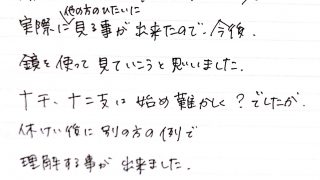 他の方のひたいに
実際に見る事が出来たので、今後、
鏡を使って見ていこうと思いました。
十干、十二支は始め難かしく?でしたが、
休けい後に別の方の例で
理解する事が出来ました。